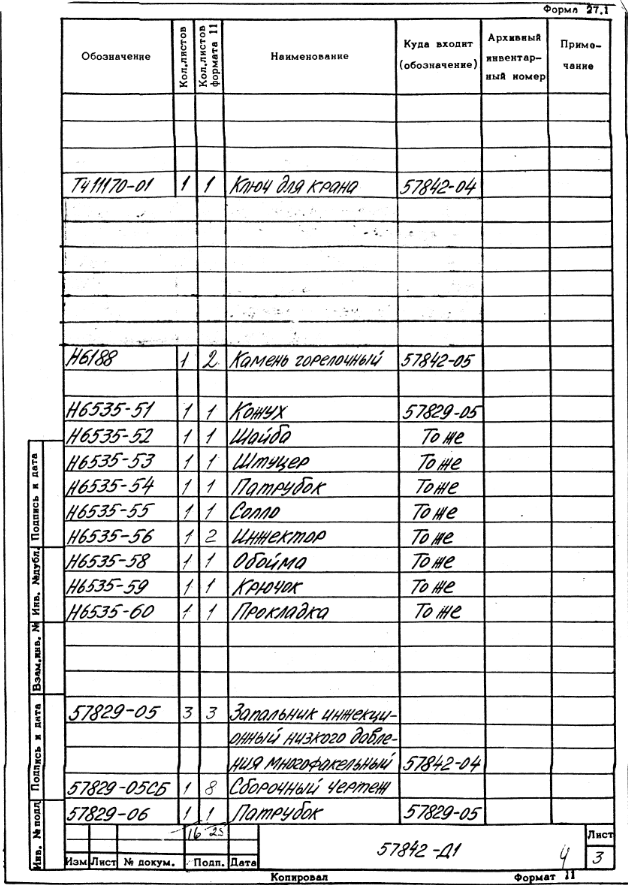 Форма 27.1
Обозначение Кол.листов Кол.листов формата 11 Наименование Куда входит (обозначение) Архивный инвентарный номер Примечание
ТЧ11170-01 1 1 Ключ для крана 57842-04
Н6188 1 2 Камень горелочный 57842-05
Н6535-51 1 1 Кожух 57829-05
Н6535-52 1 1 Шайба То же
Н6535-53 1 1 Штуцер То же
Н6535-54 1 1 Патрубок То же
Н6535-55 1 1 Сопло То же
Н6535-56 1 2 Инжектор То же
Н6535-58 1 1 Обойма То же
Н6535-59 1 1 Крючок То же
Н6535-60 1 1 Прокладка То же
57829-05 3 3 Запальник инжекци-
онный низкого давле-
ния многофакельный 57842-04
57829-05СБ 1 8 Сборочный чертеж
57829-06 1 1 Патрубок 57829-05
16 25
Изм Лист № докум. Подп. Дата
57842-Д1
Лист
4 3
Копировал Формат 11
Подпись и дата
Инв. №дубл.
Взам.инв. №
Подпись и дата
Инв. №подл